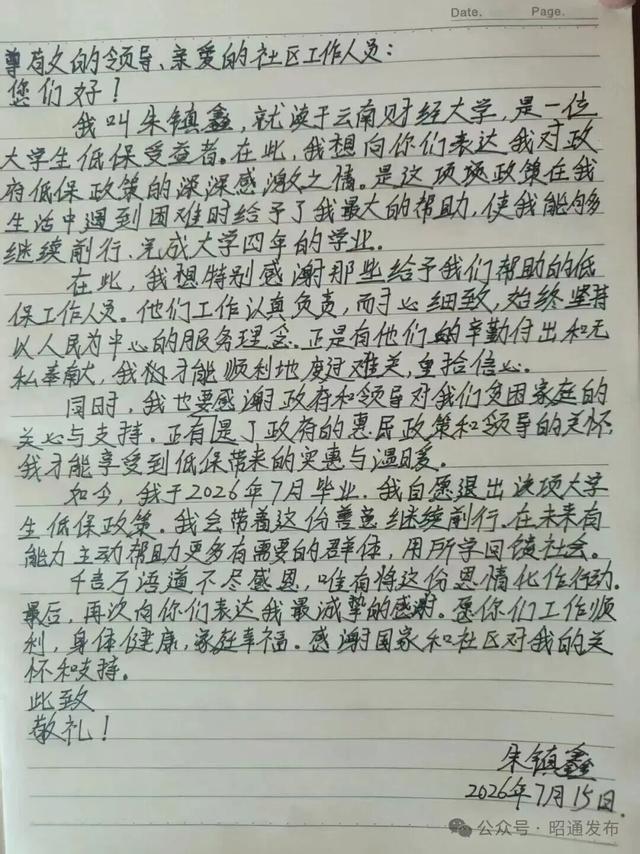 Date. Page.
尊敬的领导、亲爱的社区工作人员：
您们好！
我叫朱镇鑫，就读于云南财经大学，是一位
大学生低保受益者。在此，我想向你们表达我对政
府低保政策的深深感激之情。是这项项政策在我
生活中遇到困难时给予了我最大的帮助，使我能够
继续前行、完成大学四年的学业。
在此，我想特别感谢那些给予我们帮助的低
保工作人员。他们工作认真负责，耐心细致，始终坚持
以人民为中心的服务理念。正是有他们的辛勤付出和无
私奉献，我才能顺利地度过难关，重拾信心。
同时，我也要感谢政府和领导对我们贫困家庭的
关心与支持。正有是了政府的惠民政策和领导的关怀，
我才能享受到低保带来的实惠与温暖。
如今，我于2026年7月毕业，我自愿退出这项大学
生低保政策。我会带着这份善意继续前行。在未来有
能力主动帮助更多有需要的群体，用所学回馈社会。
千言万语道不尽感恩，唯有将这份恩情化作行动。
最后，再次向你们表达我最诚挚的感谢。愿你们工作顺
利，身体健康，家庭幸福。感谢国家和社区对我的关
怀和支持。
此致
敬礼！
朱镇鑫
2026年7月15日.
公众号·昭通发布